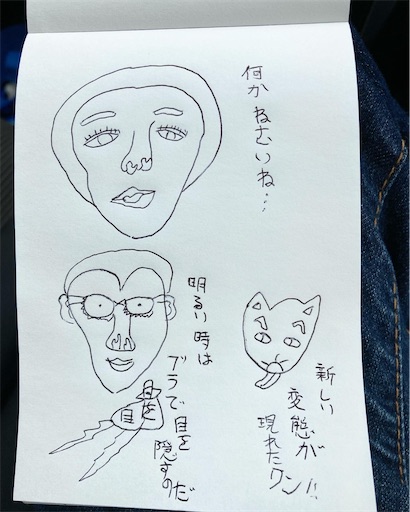 何かねむいね…
明るい時は
ブラで目を
隠すのだ
目を
目
新しい
変態が
現れたワン!!